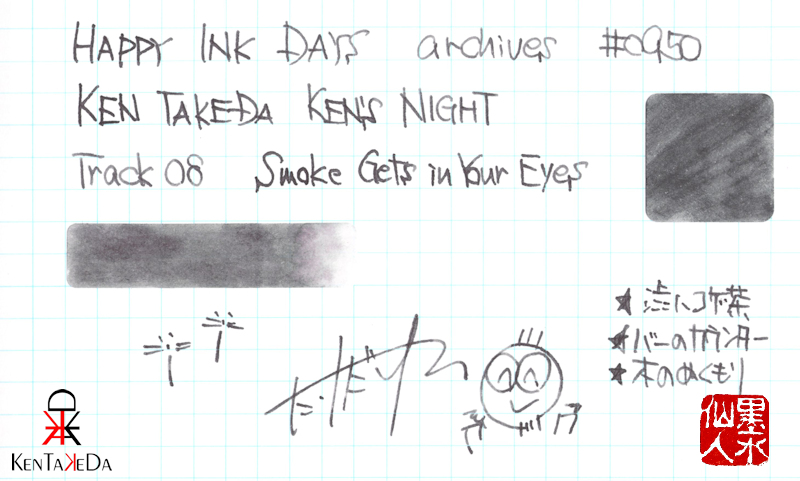 HAPPY INK DAYS archives #0950
KEN TAKEDA KEN'S NIGHT
Track 08 Smoke Gets in Your Eyes
★バーのカウンター
★木のぬくもり
KENTAKEDA
墨水
仙人